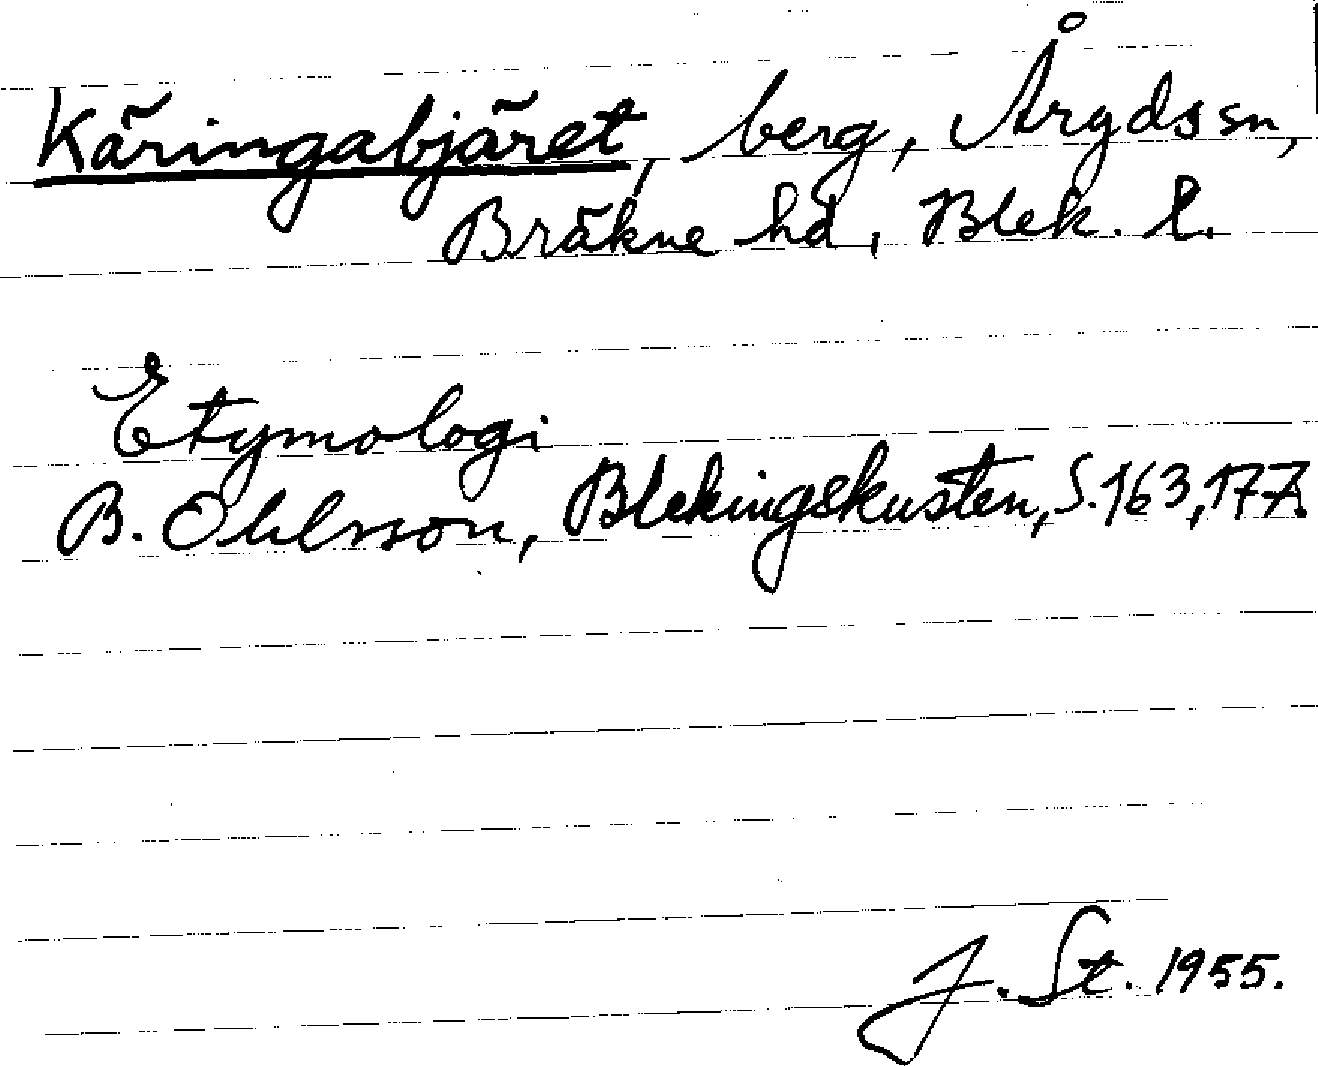 Käringabjäret, berg, Åryds sn,
Bräkne hd, Blek. l.
Etymologi
B. Ohlsson, Blekingskusten, S. 163, 177.
J. St. 1955.